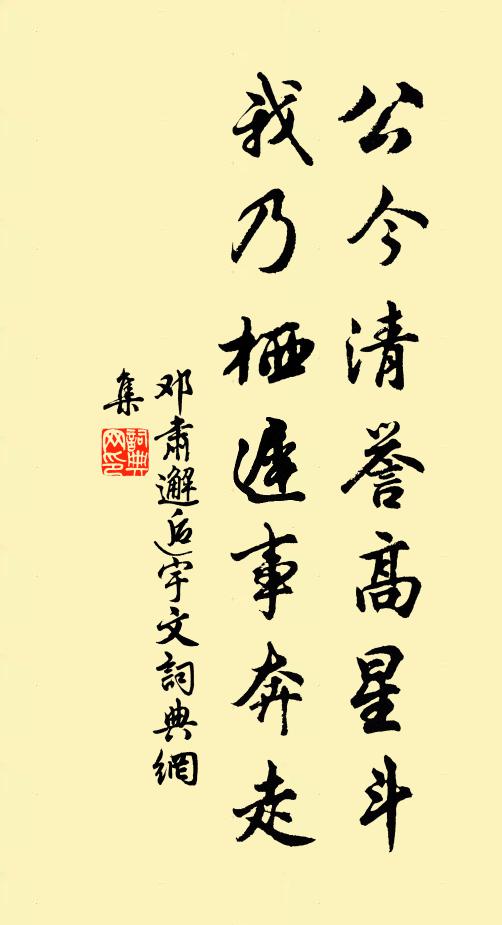 公今清誉高星斗
我乃栖遲事奔走
邓肃邂逅宇文詞典網
集
詞典网印